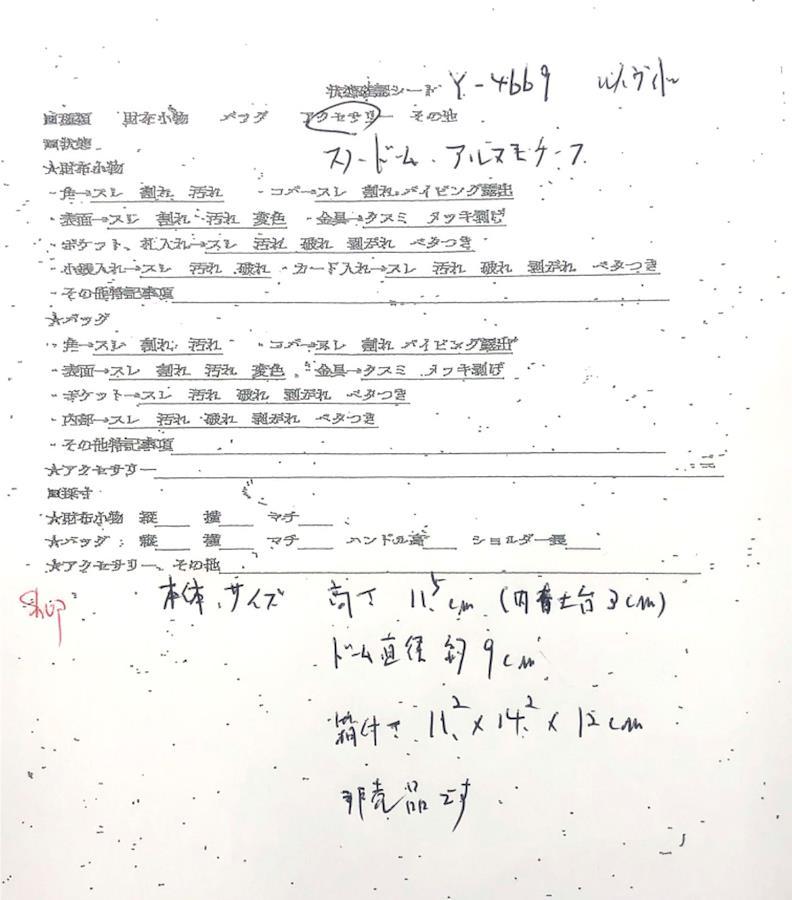 状態確認シート Y-4669 ルイヴィトン
■種類 財布小物 バッグ アクセサリー その他
■状態
スノードーム、アルマモケース
★財布小物
・角→スレ 割れ 汚れ ・コバ→スレ 割れ パイピング露出
・表面→スレ 割れ 汚れ 変色 ・金具→クスミ メッキ剥げ
・ポケット、札入れ→スレ 汚れ 破れ 剥がれ ベタつき
・小銭入れ→スレ 汚れ 破れ ・カード入れ→スレ 汚れ 破れ 剥がれ ベタつき
・その他特記事項
★バッグ
・角→スレ 割れ 汚れ ・コバ→スレ 割れ パイピング露出
・表面→スレ 割れ 汚れ 変色 ・金具→クスミ メッキ剥げ
・ポケット→スレ 汚れ 破れ 剥がれ ベタつき
・内部→スレ 汚れ 破れ 剥がれ ベタつき
・その他特記事項
★アクセサリー
■採寸
★財布小物 縦 横 マチ
★バッグ 縦 横 マチ ハンドル高 ショルダー長
★アクセサリー、その他
本体、サイズ 高さ 11.5cm (内 土台3cm)
ドーム直径 約9cm
箱サイズ 11.2×14.2×12cm
非売品です